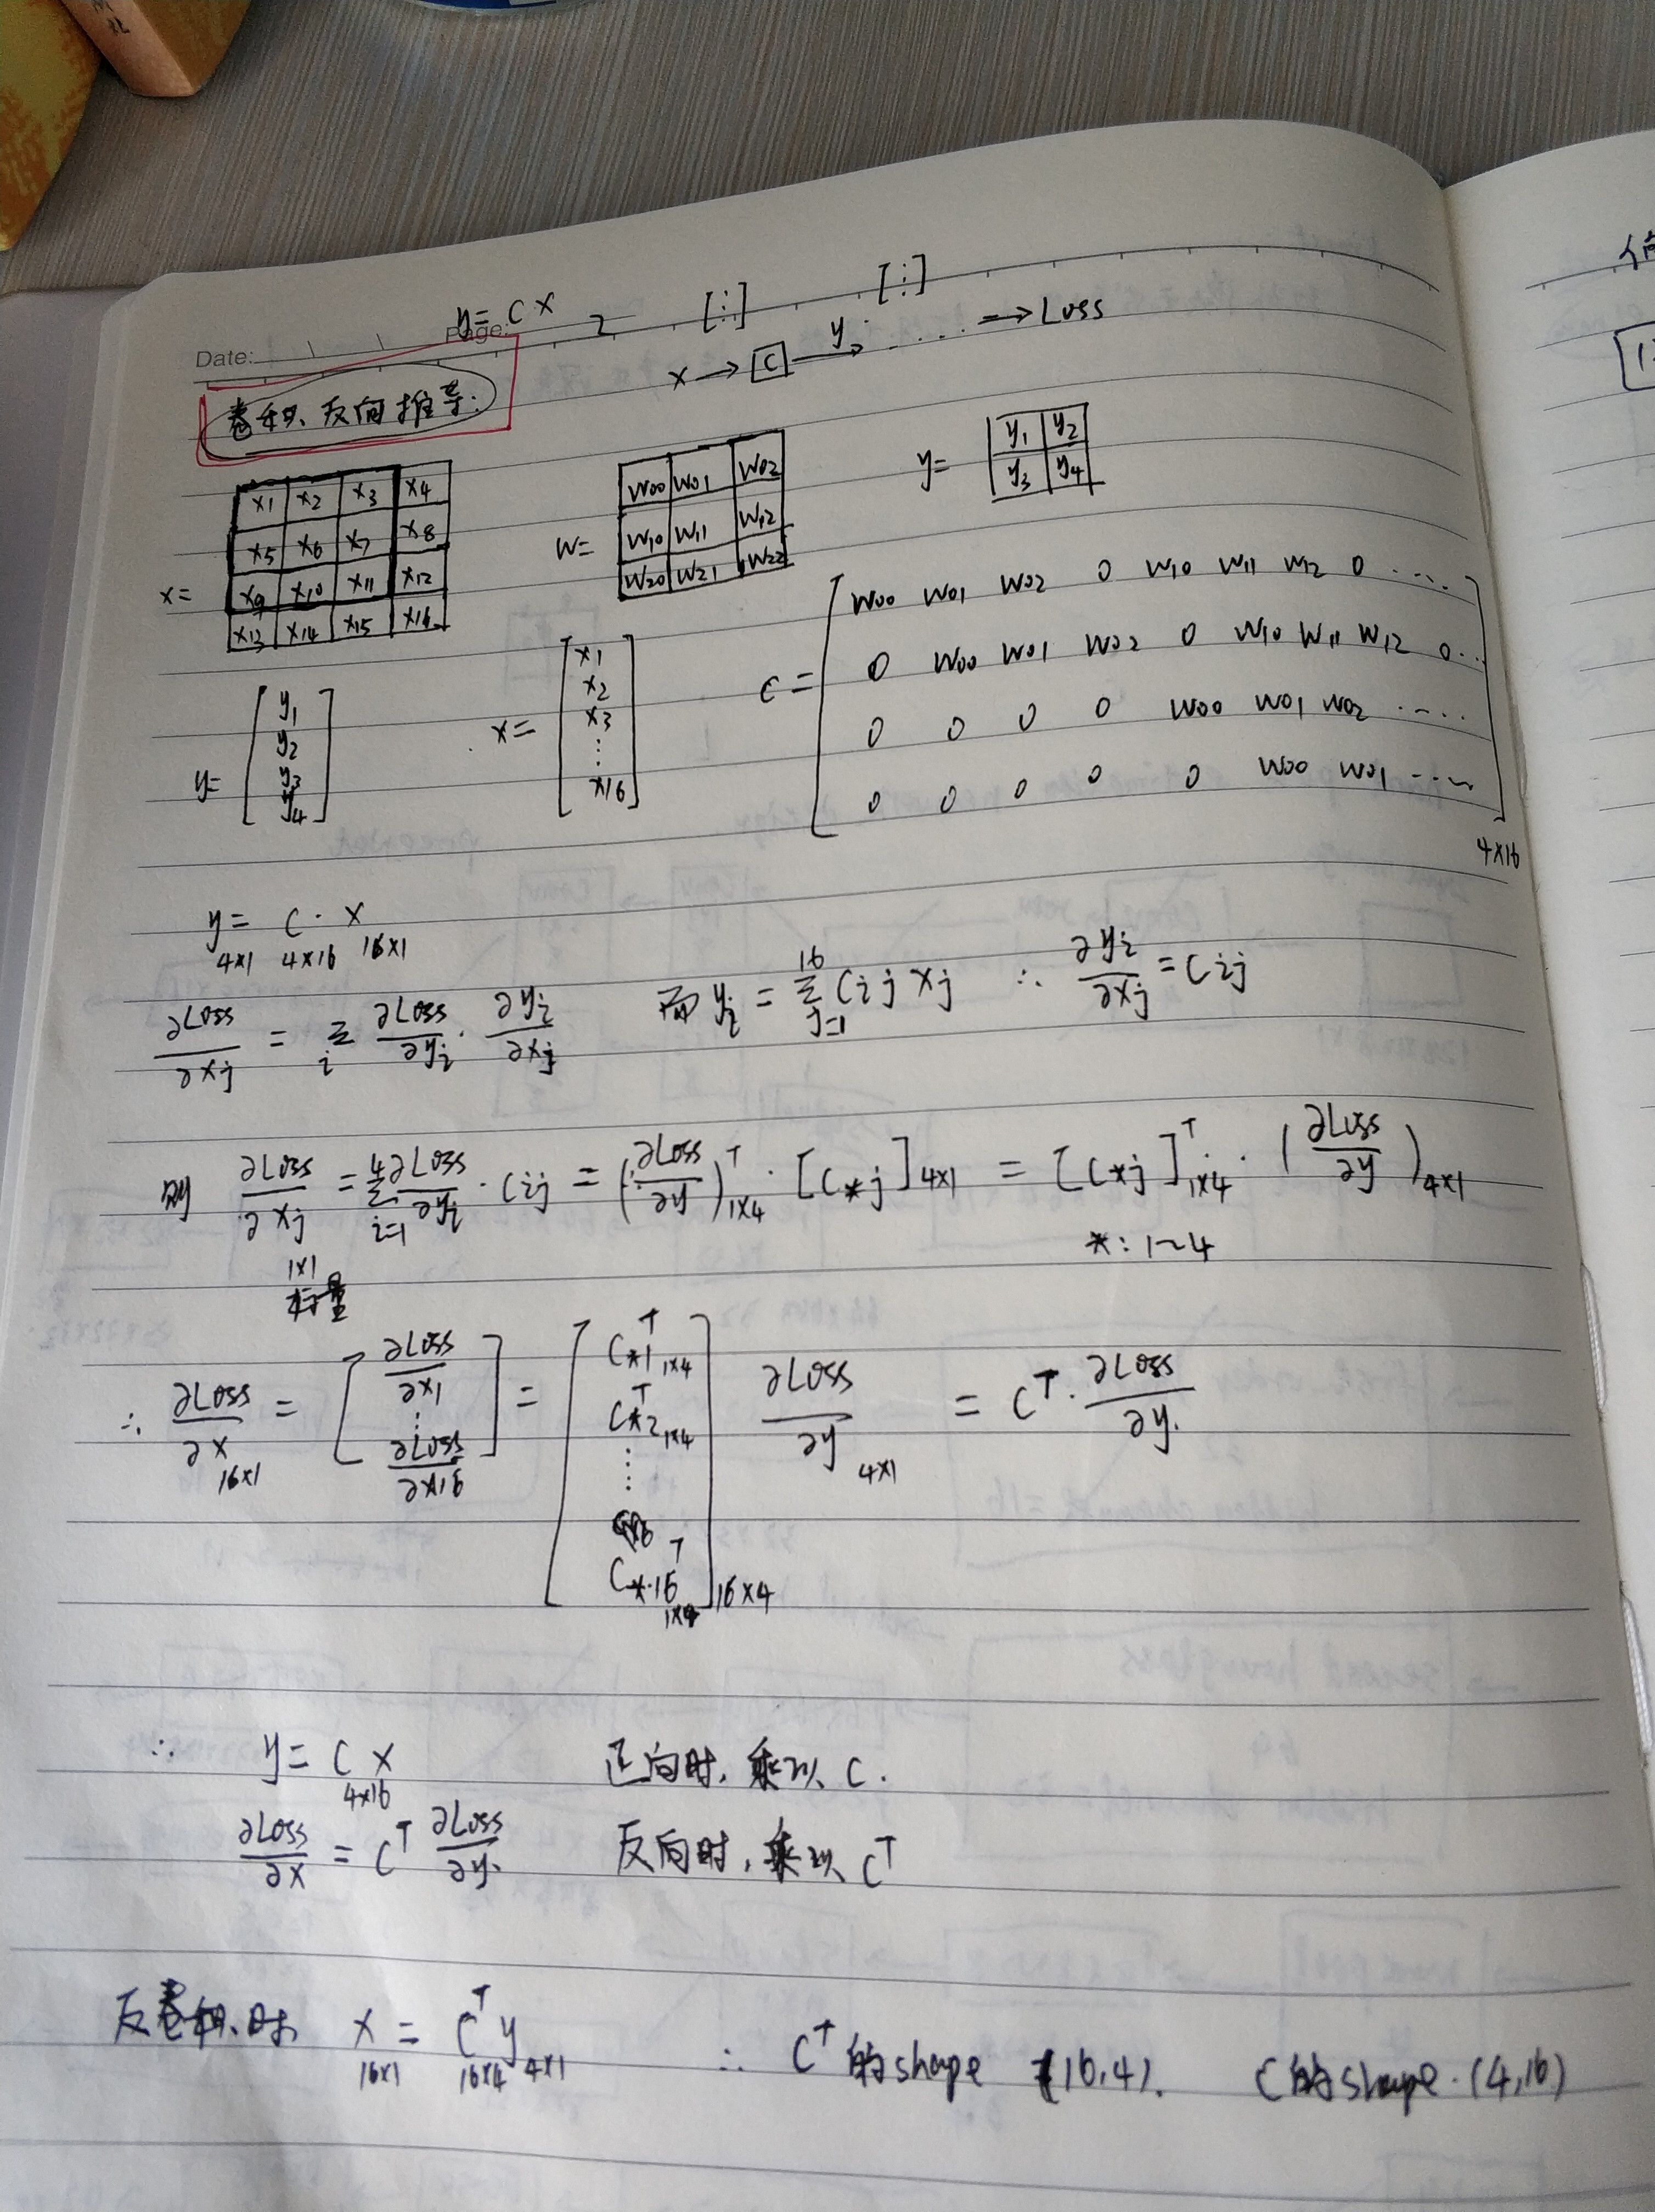 y= C x
[⋮] [⋮]
Date: Page:
x → [C] →y ‥‥ → Loss
卷积、反向推导:
x= x1 x2 x3 x4
x5 x6 x7 x8
x9 x10 x11 x12
x13 x14 x15 x16
W= W00 W01 W02
W10 W11 W12
W20 W21 W22
y= y1 y2
y3 y4
y= [y1 y2 y3 y4]
x= [x1 x2 x3 ⋮ x16]
C= [W00 W01 W02 0 W10 W11 W12 0 ‥‥
0 W00 W01 W02 0 W10 W11 W12 0‥
0 0 0 0 W00 W01 W02 ‥‥
0 0 0 0 0 W00 W01 ‥‥] 4×16
y = C · x
4×1 4×16 16×1
∂Loss/∂xj = Σi ∂Loss/∂yi · ∂yi/∂xj 而 yi = Σ(j=1→16) Cij xj ∴ ∂yi/∂xj = Cij
则 ∂Loss/∂xj = Σ(i=1→4) ∂Loss/∂yi · Cij = (∂Loss/∂y)ᵀ1×4 · [C*j]4×1 = [C*j]ᵀ1×4 · (∂Loss/∂y)4×1
1×1 *: 1~4
标量
∴ ∂Loss/∂x 16×1 = [∂Loss/∂x1 ⋮ ∂Loss/∂x16] = [C*1ᵀ1×4 C*2ᵀ1×4 ⋮ C*·16ᵀ1×4]16×4 ∂Loss/∂y 4×1 = Cᵀ · ∂Loss/∂y.
∴ y= C x 正向时, 乘以 C.
4×16
∂Loss/∂x = Cᵀ ∂Loss/∂y. 反向时, 乘以 Cᵀ
反卷积时 x = Cᵀ y ∴ Cᵀ 的shape (16,4). C的shape.(4,16)
16×1 16×4 4×1